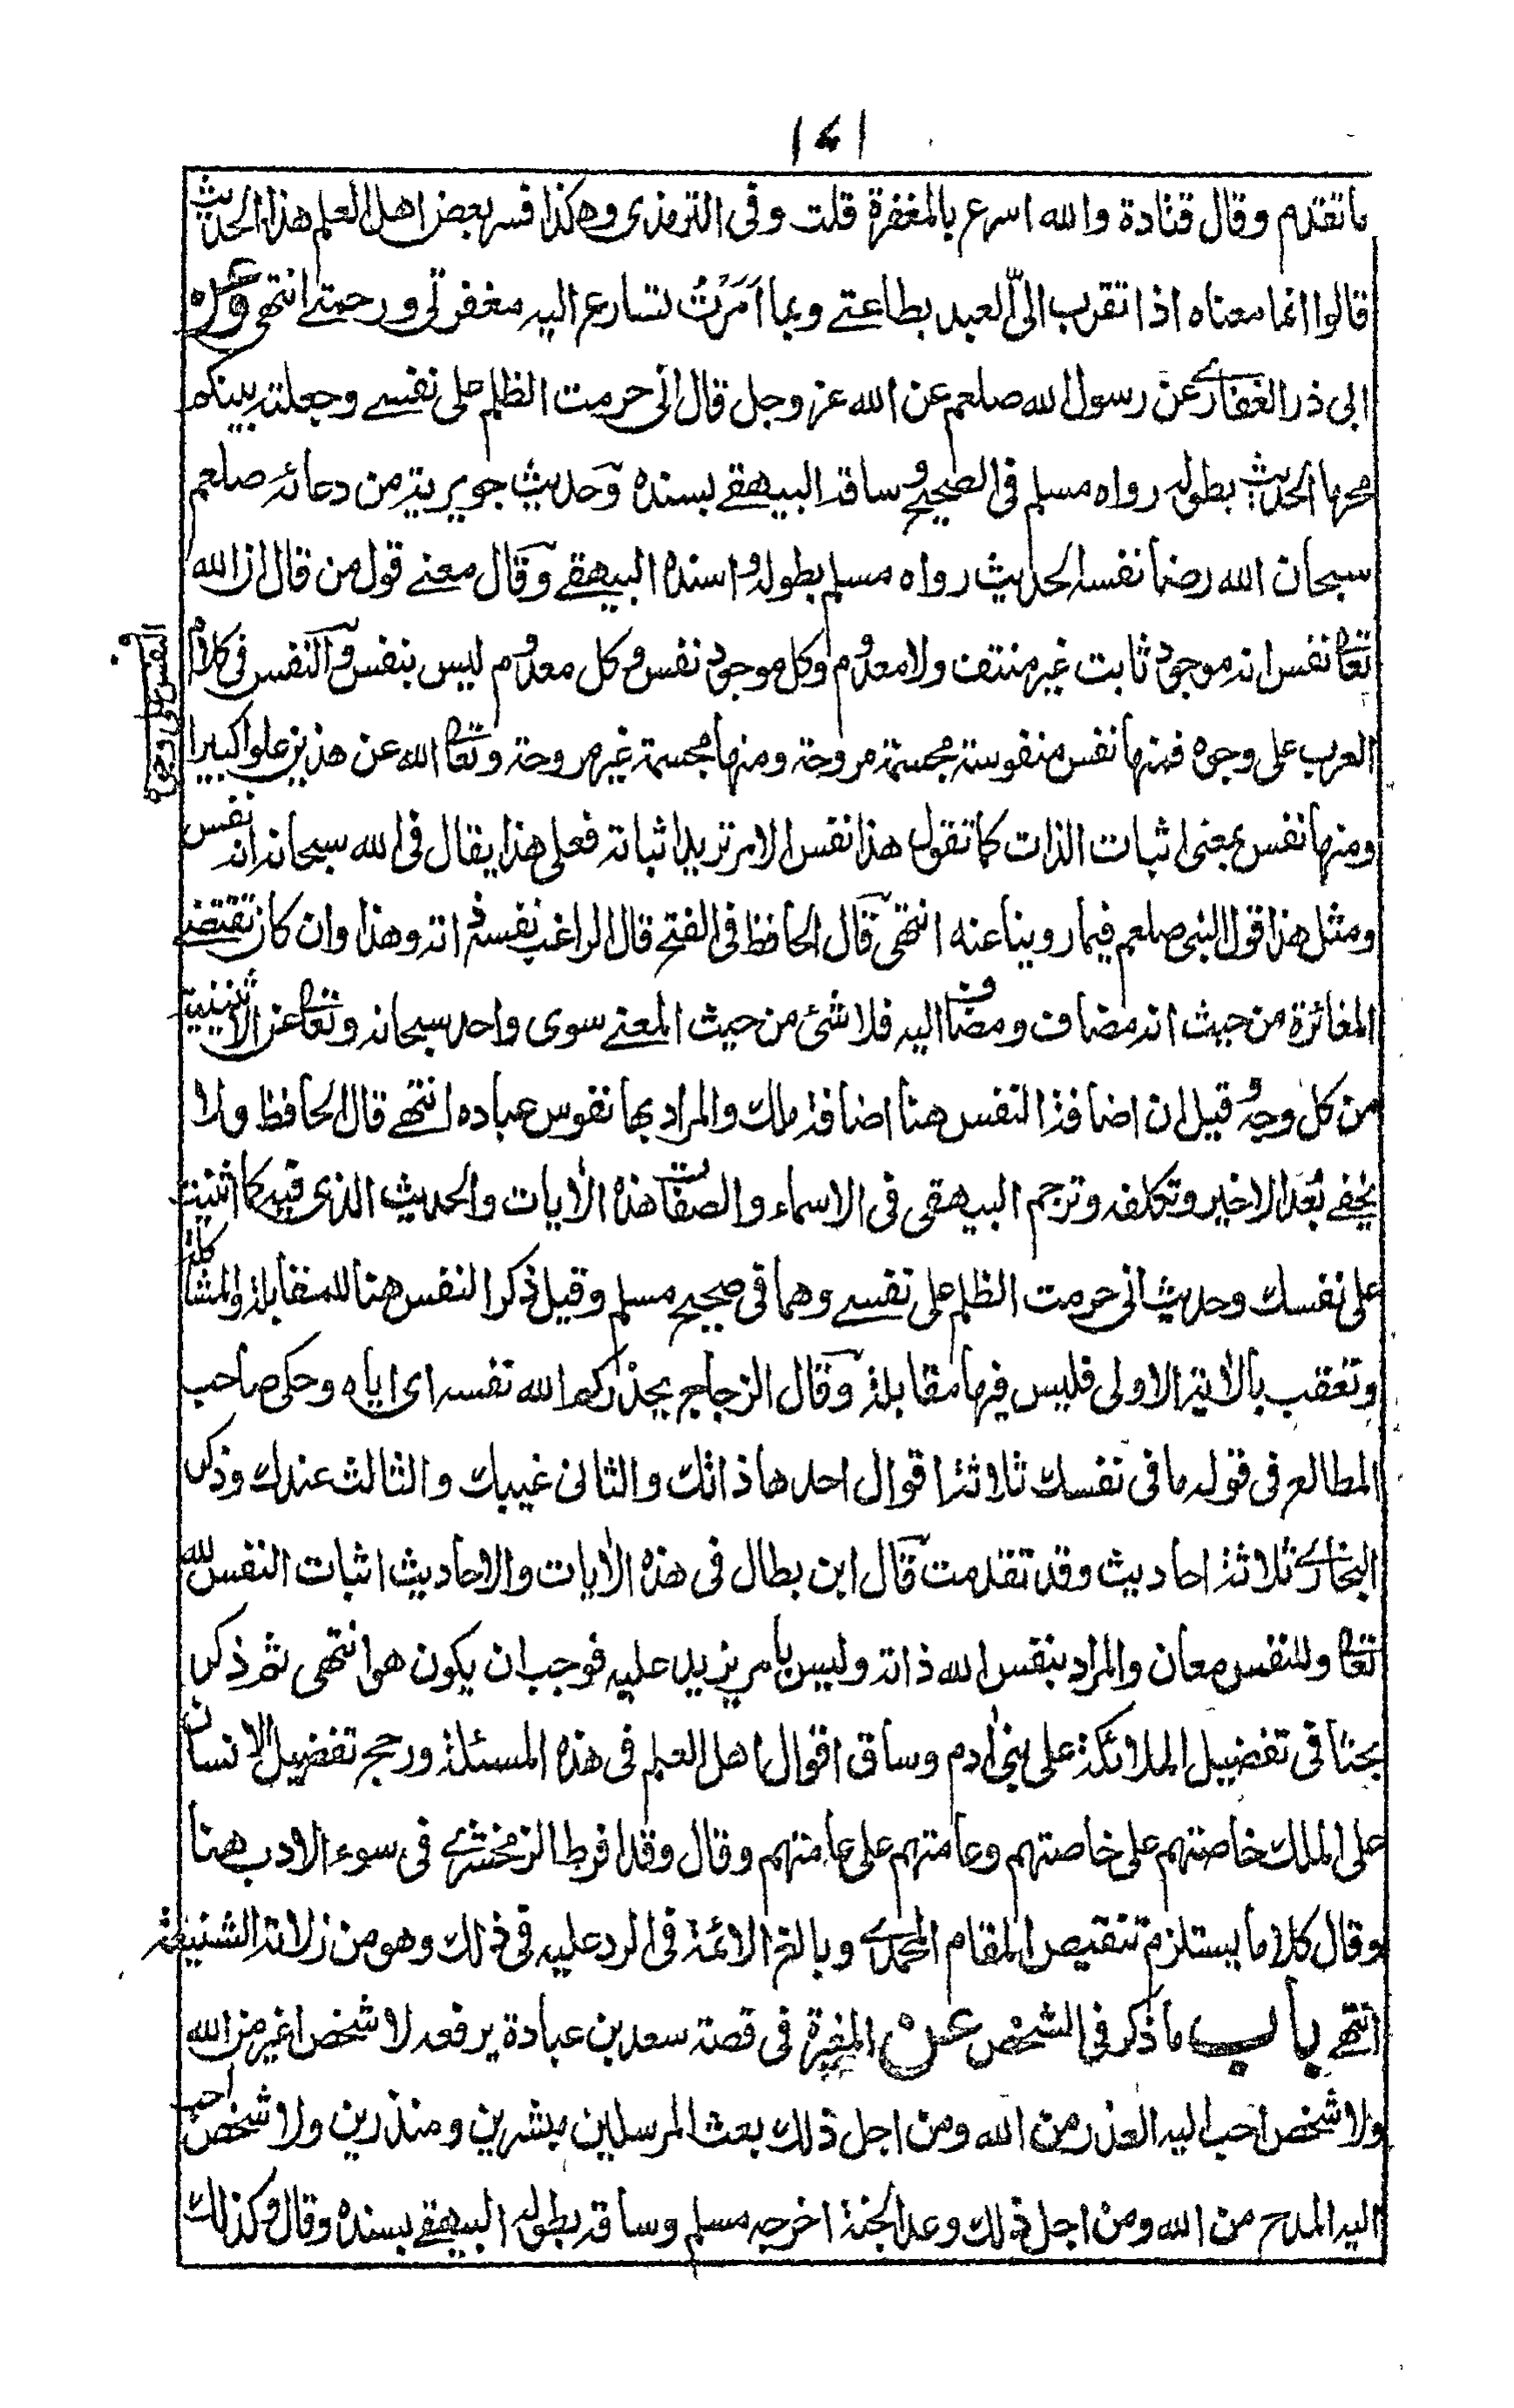 ١٧١
ما تقدم وقال قتادة والله اسرع بالمغفرة قلت وفى الترمذى وهكذا فسر بعض اهل العلم هذا الحديث
قالوا انما معناه اذا تقرب الىّ العبد بطاعتے وبما اَمَرْتُ تسارع اليه مغفرتى ورحمتے انتهى وعن
ابى ذر الغفارے عن رسول الله صلعم عن الله عز وجل قال انى حرمت الظلم على نفسے وجعلته بينكم
محرما الحديث بطوله رواه مسلم فى الصحيح وساقه البيهقے بسنده وحديث جويرية من دعائه صلعم
سبحان الله رضا نفسه الحديث رواه مسلم بطوله واسنده البيهقے وقال معنے قول من قال ان الله
تعا نفس انه موجود ثابت غير منتف ولا معدوم وكل موجود نفس وكل معدوم ليس بنفس والنفس فى كلام
العرب على وجوه فمنها نفس منفوسة مجسمة مروحة ومنها مجسمة غير مروحة وتعا الله عن هذين علوا كبيرا
النفس على وجوه
ومنها نفس بمعنى اثبات الذات كما تقول هذا نفس الامر تريد اثباته فعلى هذا يقال فى الله سبحانه انه نفس
ومثل هذا قول النبى صلعم فيما روينا عنه انتهى قال الحافظ فى الفتح قال الراغب نفسه ذاته وهذا وان كان تقتضے
المغائرة من حيث انه مضاف ومضاف اليه فلا شئ من حيث المعنے سوى واحد سبحانه وتعا عن الاثنينية
من كل وجه وقيل ان اضافة النفس هنا اضافة ملك والمراد بها نفوس عباده انتهے قال الحافظ ولا
يخفے بُعد الاخير وتكلفه وترجم البيهقى فى الاسماء والصفات هذه الاٰيات والحديث الذى فيه كما اثنيت
على نفسك وحديث انى حرمت الظلم على نفسے وهما فى صحيح مسلم وقيل ذكر النفس هنا للمقابلة والمشاكلة
وتعقب بالاٰية الاولى فليس فيها مقابلة وقال الزجاج يحذركم الله نفسه اى اياه وحكى صاحب
المطالع فى قوله ما فى نفسك ثلاثة اقوال احدها ذاتك والثانى غيبك والثالث عندك وذكر
البخارے ثلاثة احاديث وقد تقدمت قال ابن بطال فى هذه الاٰيات والاحاديث اثبات النفس لله
تعا وللنفس معان والمراد بنفس الله ذاته وليس بامر يزيد عليه فوجب ان يكون هو انتهى ثم ذكر
بحثا فى تفضيل الملائكة على بنى اٰدم وساق اقوال اهل العلم فى هذه المسئلة ورجح تفضيل الانسان
على الملك خاصتهم على خاصتهم وعامتهم على عامتهم وقال وقد افرط الزمخشرے فى سوء الادب هنا
وقال كلاما يستلزم تنقيص المقام المحمدے وبالغ الائمة فى الرد عليه فى ذلك وهو من زلاته الشنيعة
انتهے باب ما ذكر فى الشخص عن المغيرة فى قصة سعد بن عبادة يرفعه لا شخص اغير من الله
ولا شخص احب اليه العذر من الله ومن اجل ذلك بعث المرسلين مبشرين ومنذرين ولا شخص احب
اليه المدح من الله ومن اجل ذلك وعد الجنة اخرجه مسلم وساقه بطوله البيهقے بسنده وقال وكذلك